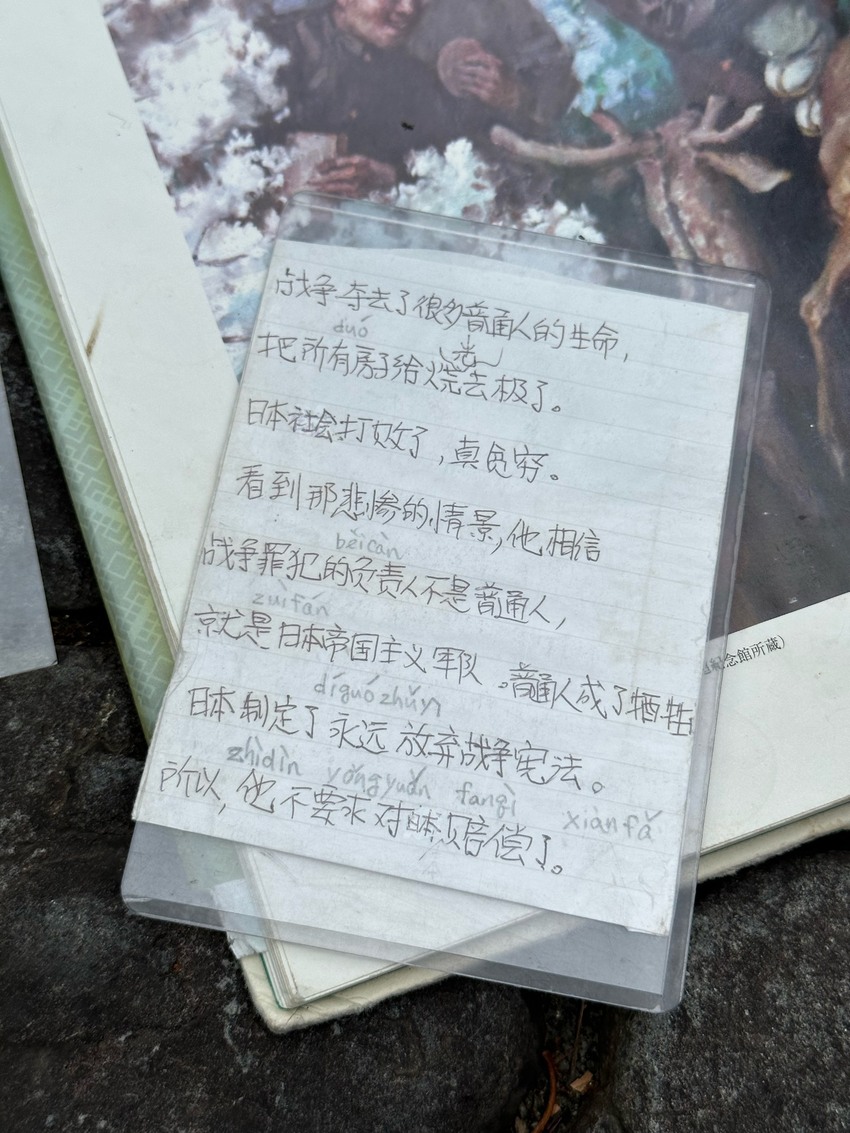 战争夺去了很多普通人的生命，
duó
把所有房子给烧去极了。
日本社会打败了，真贫穷。
看到那悲惨的情景，他相信
bēicǎn
战争罪犯的负责人不是普通人，
zuìfàn
就是日本帝国主义军队。普通人成了牺牲
dìguózhǔyì
日本制定了永远放弃战争宪法。
zhìdìn yǒngyuǎn fangqì xiànfǎ
所以，他不要求对日本赔偿了。
紀念館所蔵）